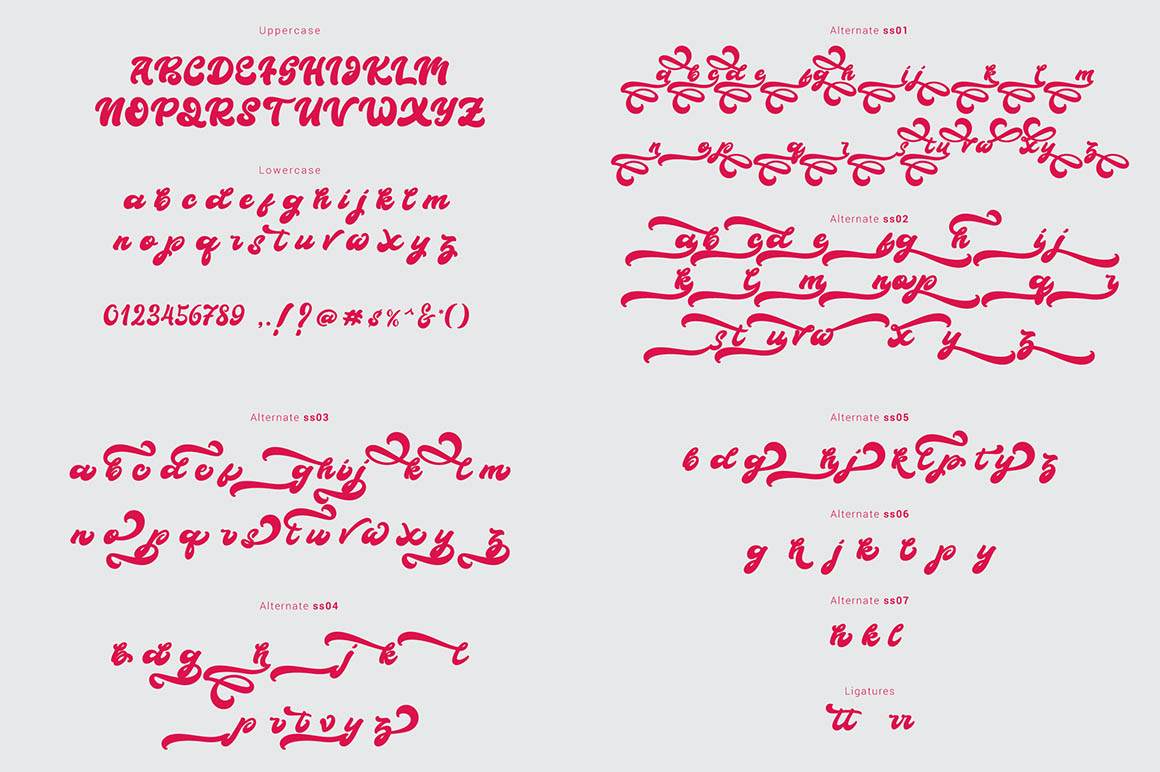 Uppercase
ABCDEFGHIJKLM
NOPQRSTUVWXYZ
Lowercase
a b c d e f g h i j k l m
n o p q r s t u v w x y z
0123456789 ,.!?@#$%^&*()
Alternate ss01
a b c d e f g h i j k l m
n o p q r s t u v w x y z
Alternate ss02
a b c d e f g h i j
k l m n o p q r
s t u v w x y z
Alternate ss03
a b c d e f g h i j k l m
n o p q r s t u v w x y z
Alternate ss04
b d g h j k l
p r t v y z
Alternate ss05
b d g h j k l p t y z
Alternate ss06
g h j k l p y
Alternate ss07
h k l
Ligatures
tt rr